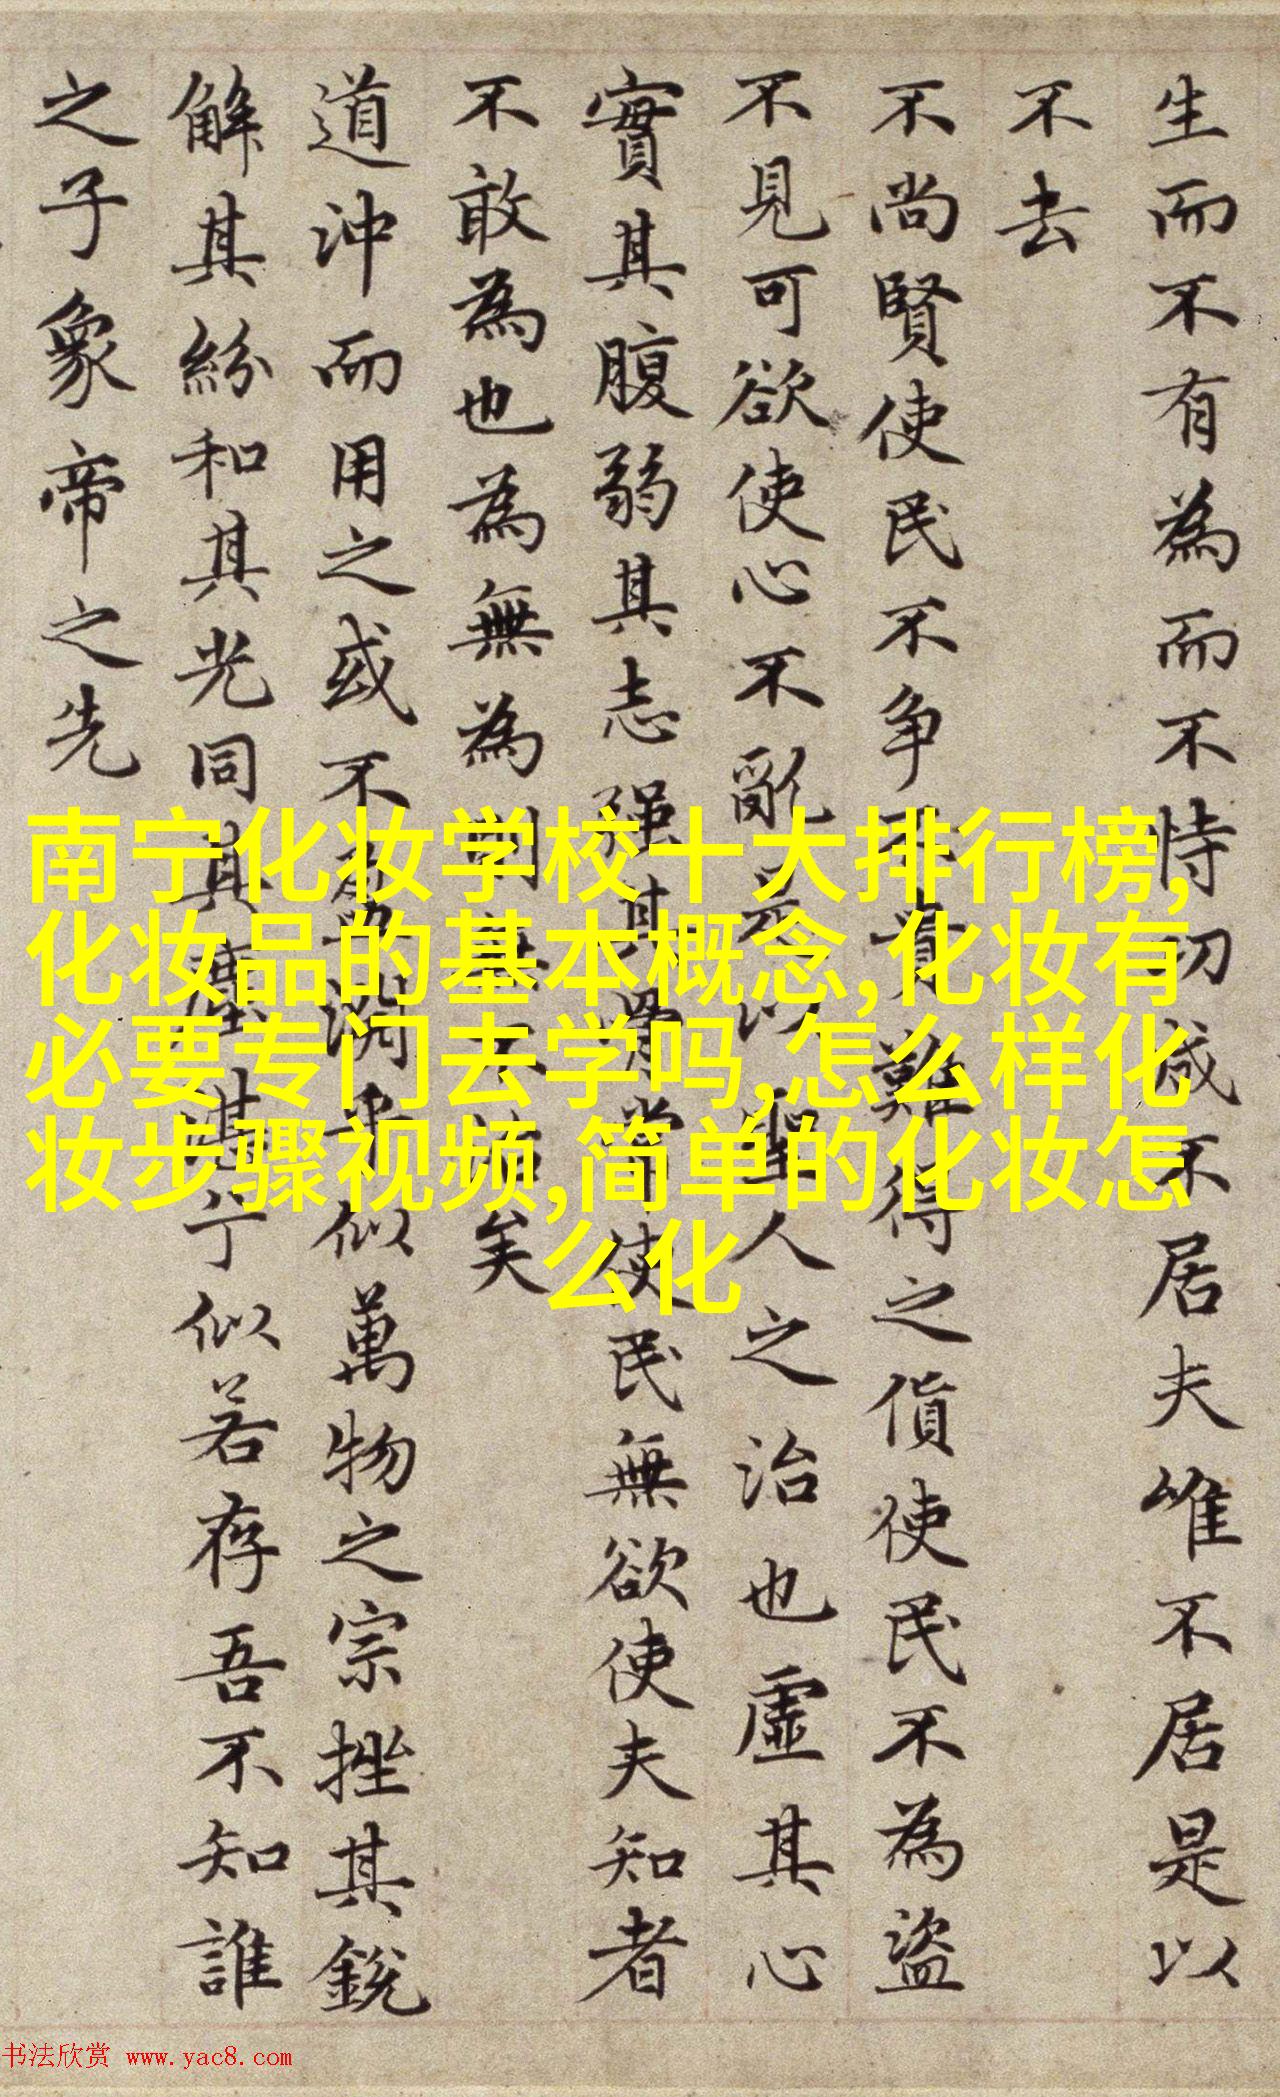 生而不有為而不恃功成不居夫唯不居是以
不去
不尚賢使民不争不貴難得之貨使民不為盜
不見可欲使心不亂是以聖人之治也虛其心
實其腹弱其志强其骨常使民無欲使夫知者
不敢為也為無為則無不治矣
道沖而用之或不盈淵乎似萬物之宗挫其銳
解其紛和其光同其塵湛兮似若存吾不知誰
之子象帝之先
南宁化妆学校十大排行榜,
化妆品的基本概念,化妆有
必要专门去学吗,怎么样化
妆步骤视频,简单的化妆怎
么化
书法欣赏 www.yac8.com